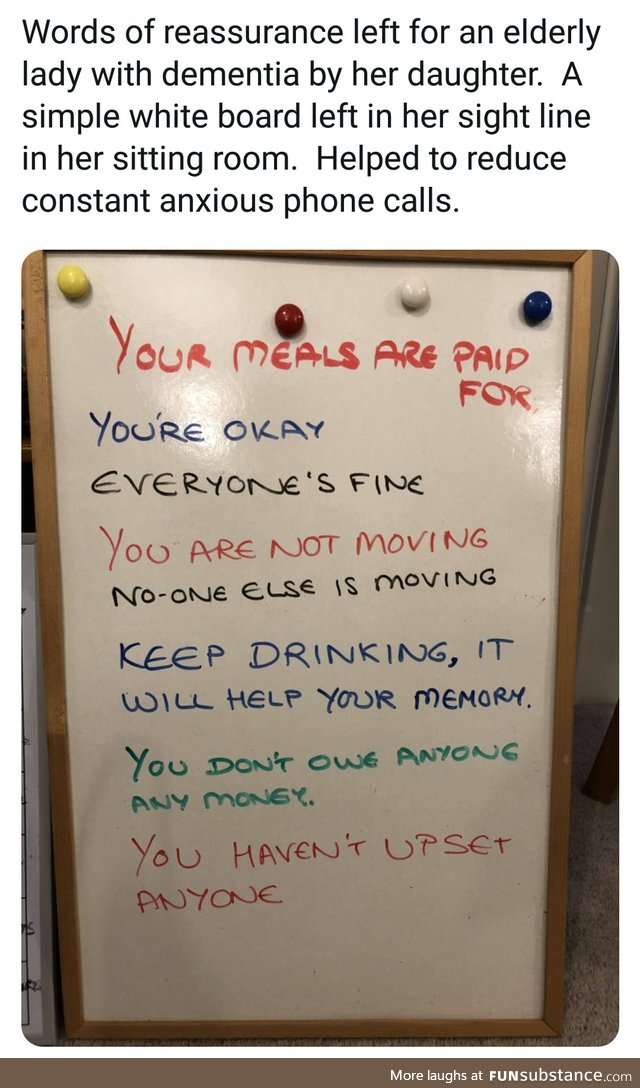 Words of reassurance left for an elderly
lady with dementia by her daughter.  A
simple white board left in her sight line
in her sitting room.  Helped to reduce
constant anxious phone calls.
YOUR MEALS ARE PAID
FOR.
YOU'RE OKAY
EVERYONE'S FINE
YOU ARE NOT MOVING
NO-ONE ELSE IS MOVING
KEEP DRINKING, IT
WILL HELP YOUR MEMORY.
YOU DON'T OWE ANYONE
ANY MONEY.
YOU HAVEN'T UPSET
ANYONE
More laughs at FUNsubstance.com